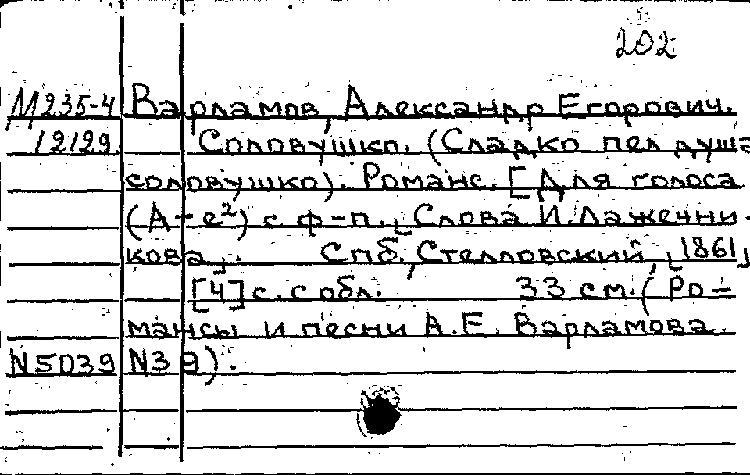 202
М235-4 Варламов, Александр Егорович.
12129. Соловушко. (Сладко пел душа
соловушко). Романс. [Для голоса
(А-е²) с ф-п. [Слова И. Лажечни-
кова]. Спб, Стелловский, [1861]
[4] с. с обл. 33 см. (Ро-
мансы и песни А.Е. Варламова.
N5039 N39).